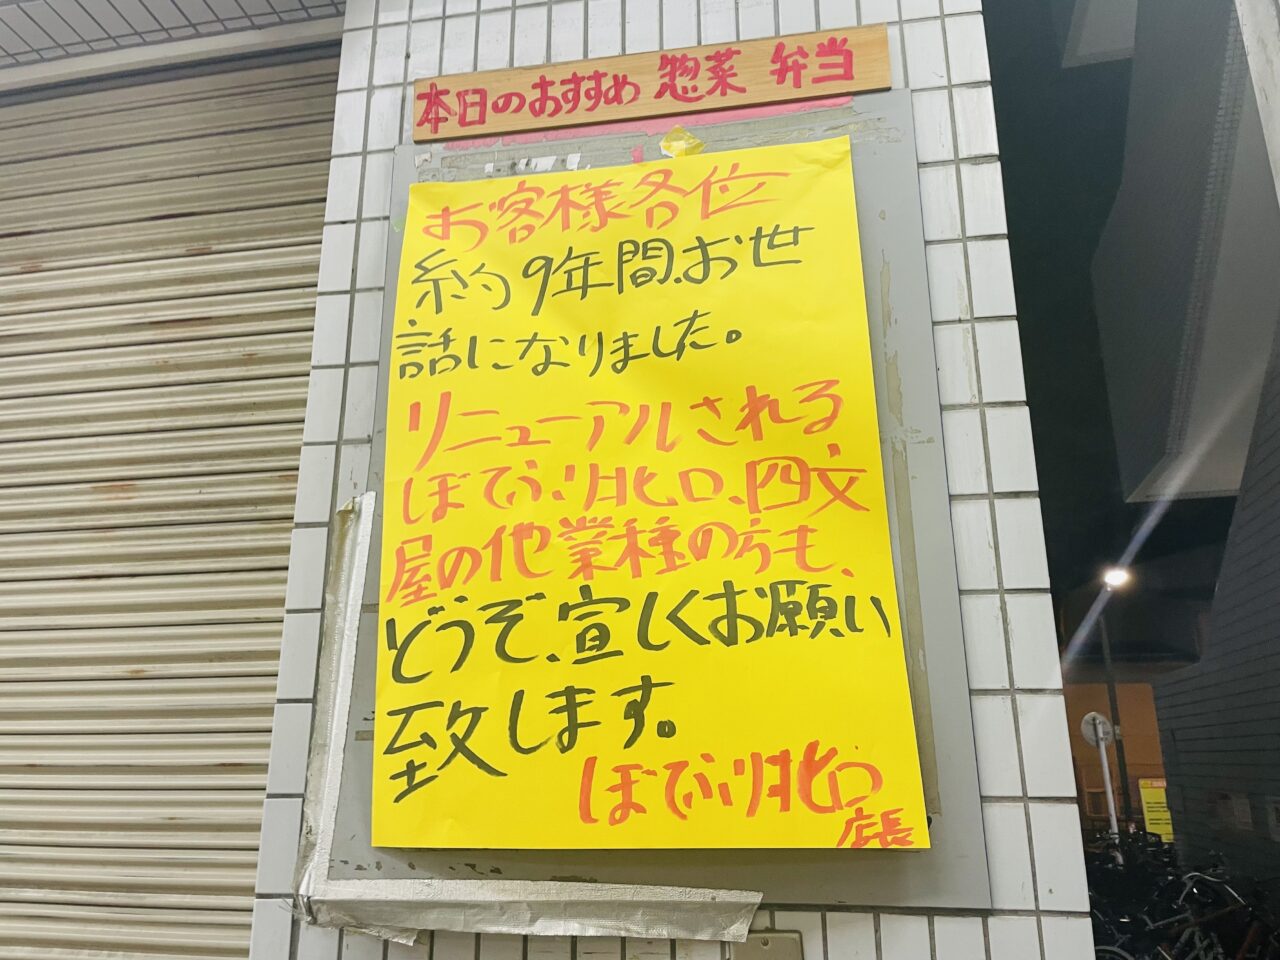 本日のおすすめ 惣菜 弁当
お客様各位
約9年間、お世
話になりました。
リニューアルされる
ぼでぶり北口、四文
屋の他業種の方も、
どうぞ、宜しくお願い
致します。
ぼでぶり北口
店長